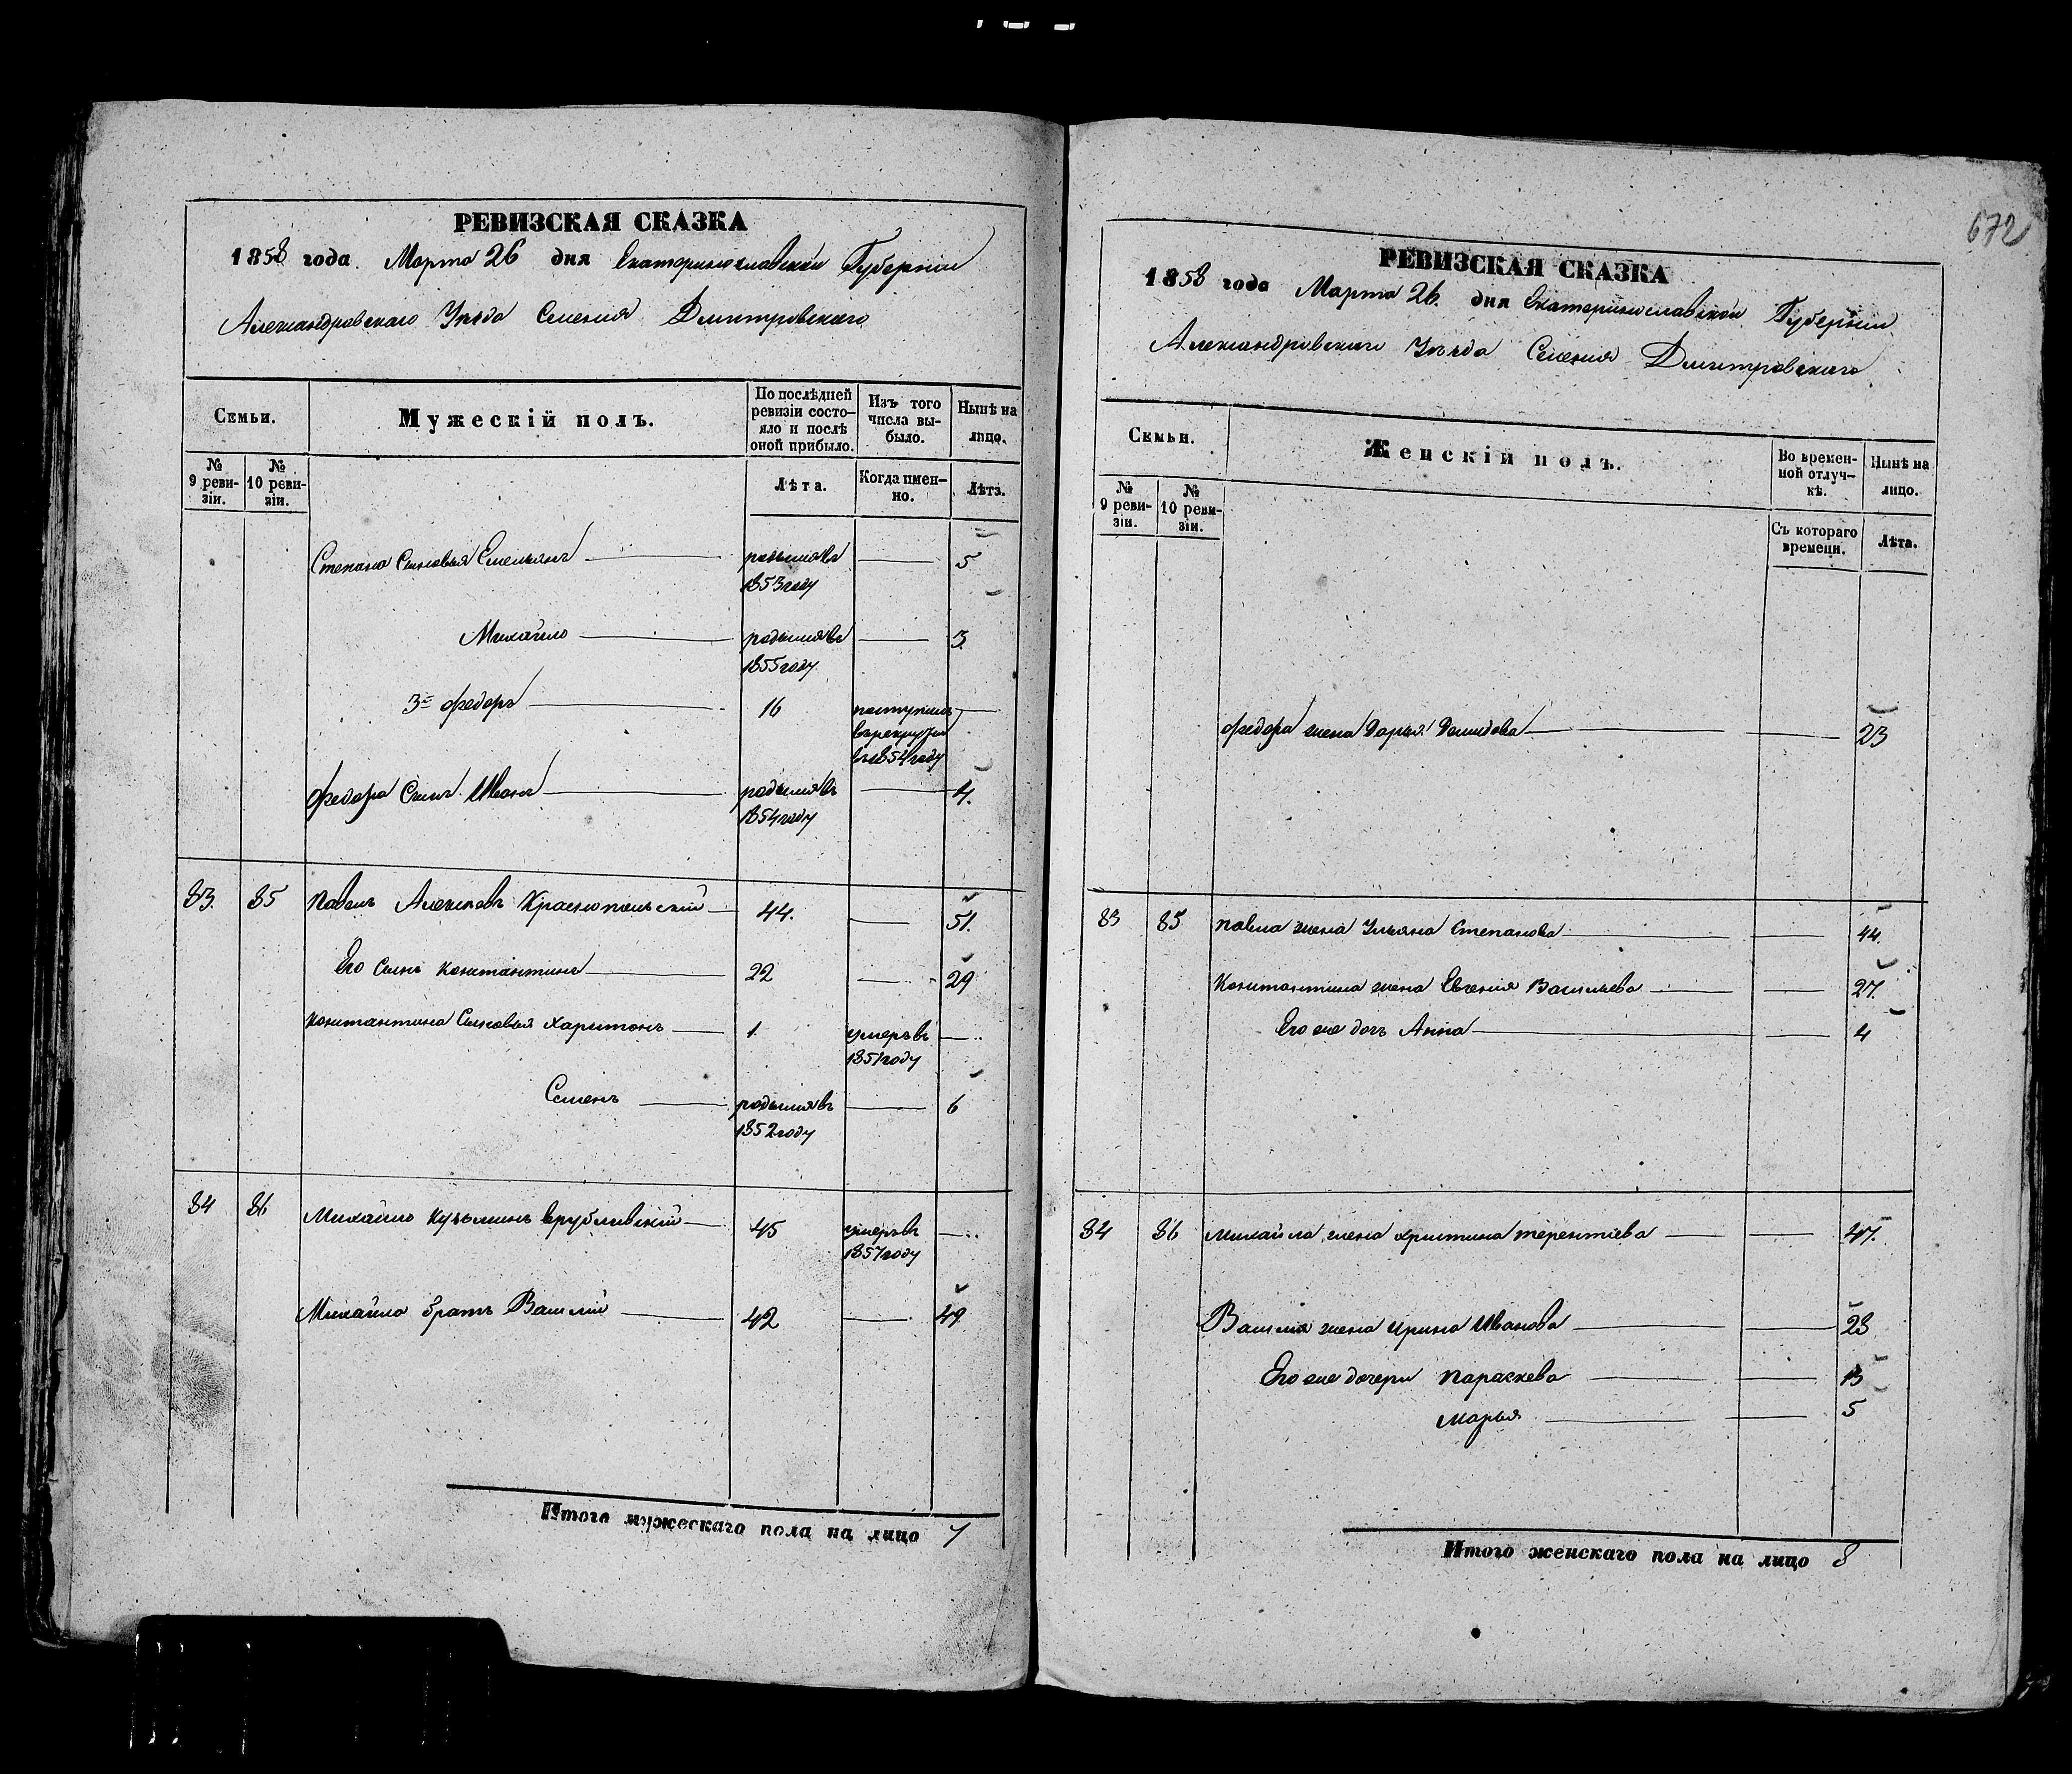 672
РЕВИЗСКАЯ СКАЗКА
1858 года Марта 26 дня Екатеринославской Губернии
Александровского Уезда Селения Дмитровского
Семьи.
Мужескій полъ.
По послѣдней ревизіи состо-яло и послѣ оной прибыло.
Изъ того числа вы-было.
Нынѣ на лицо.
№ 9 реви-зіи.
№ 10 реви-зіи.
Лѣта.
Когда имен-но.
Лѣта.
Степана Сыновья Емельянъ родился въ 5
1853 году
Михайло родился въ 3
1855 году
3й Федоръ 16 поступилъ
в рекруты
въ 1854 году
Федора Сынъ Иванъ родился въ 4.
1854 году
83. 85 Павелъ Алексеевъ Краснопольский 44. 51.
Его Сынъ Константинъ 22 29
Константина Сыновья Харитонъ 1. умеръ въ
1851 году
Семенъ родился въ 6
1852 году
84 86 Михайло Кузьминъ Врублевский 45 умеръ въ
1857 году
Михайла братъ Василий 42 49.
Итого мужескаго пола на лицо 7
РЕВИЗСКАЯ СКАЗКА
1858 года Марта 26. дня Екатеринославской Губернии
Александровского Уезда Селения Дмитровского
Семьи.
Женскій полъ.
Во времен-ной отлуч-кѣ.
Нынѣ на лицо.
№ 9 реви-зіи.
№ 10 реви-зіи.
Съ котораго времени.
Лѣта.
Федора жена Дарья Демидова 23
83 85 Павла жена Ульяна Степанова 44.
Константина жена Евгения Васильева 27.
Его же дочь Анна 4
84 86 Михайла жена Христина Терентіева 47.
Василия жена Ирина Иванова 28
Его же дочери Параскева 13
Марья 5
Итого женскаго пола на лицо 8